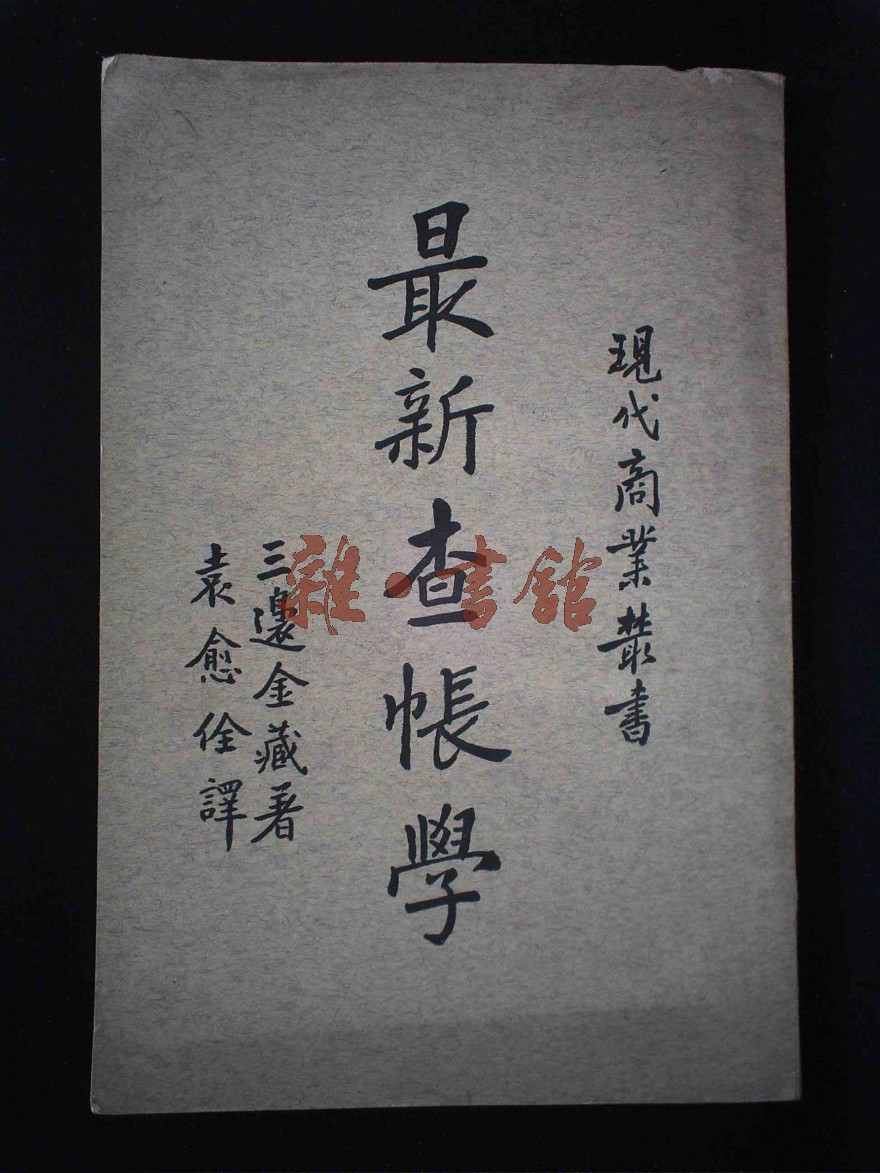 現代商業叢書
最新查帳學
三邊金藏著
袁愈佺譯
雜·書舘